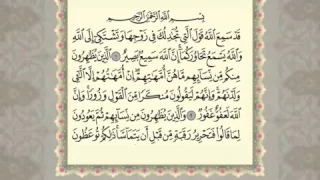 بِسْمِ اللَّهِ الرَّحْمَٰنِ الرَّحِيمِ
قَدْ سَمِعَ اللَّهُ قَوْلَ الَّتِي تُجَادِلُكَ فِي زَوْجِهَا وَتَشْتَكِي إِلَى اللَّهِ
وَاللَّهُ يَسْمَعُ تَحَاوُرَكُمَا إِنَّ اللَّهَ سَمِيعٌ بَصِيرٌ ۝ الَّذِينَ يُظَاهِرُونَ
مِنكُم مِّن نِّسَائِهِم مَّا هُنَّ أُمَّهَاتِهِمْ إِنْ أُمَّهَاتُهُمْ إِلَّا اللَّائِي
وَلَدْنَهُمْ وَإِنَّهُمْ لَيَقُولُونَ مُنكَرًا مِّنَ الْقَوْلِ وَزُورًا وَإِنَّ
اللَّهَ لَعَفُوٌّ غَفُورٌ ۝ وَالَّذِينَ يُظَاهِرُونَ مِن نِّسَائِهِمْ ثُمَّ يَعُودُونَ
لِمَا قَالُوا فَتَحْرِيرُ رَقَبَةٍ مِّن قَبْلِ أَن يَتَمَاسَّا ذَٰلِكُمْ تُوعَظُونَ